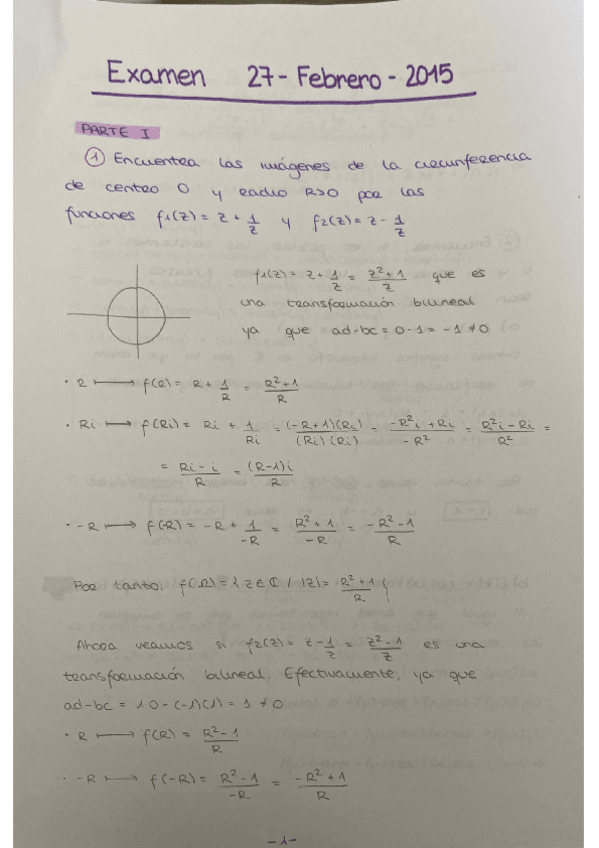 Examen 27-Febrero-2015
PARTE I
① Encuentra las imágenes de la circunferencia
de centro 0 y radio R>0 por las
funciones f₁(z) = z + 1/z y f₂(z) = z - 1/z
f₁(z) = z + 1/z = z²+1/z que es
una transformación bilineal
ya que ad-bc = 0-1 = -1 ≠ 0
· R ⟼ f(R) = R + 1/R = R²+1/R
· Ri ⟼ f(Ri) = Ri + 1/Ri = (-R+1)(Ri)/(Ri)(Ri) = -R²i+Ri/-R² = R²i-Ri/R² =
= Ri-i/R = (R-1)i/R
· -R ⟼ f(-R) = -R + 1/-R = R²+1/-R = -R²-1/R
Por tanto, f(Ω) = { z ∈ ℂ / |z| = R²+1/R }
Ahora veamos si f₂(z) = z - 1/z = z²-1/z es una
transformación bilineal. Efectivamente, ya que
ad-bc = 1·0-(-1)(1) = 1 ≠ 0
· R ⟼ f(R) = R²-1/R
· -R ⟼ f(-R) = R²-1/-R = -R²+1/R
-1-